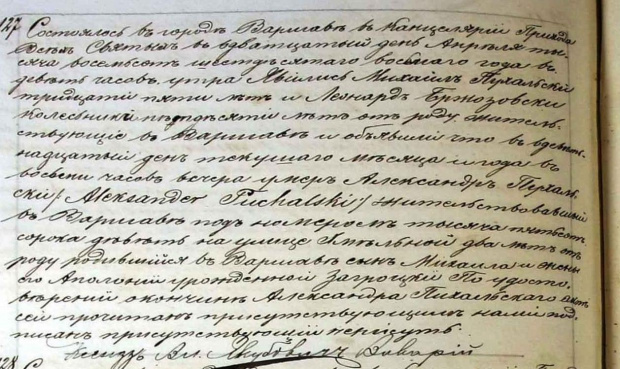 127 Состоялось въ городѣ Варшавѣ въ Канцелярiи Прихода
Всѣхъ Святыхъ въ двадцатый день Апрѣля ты-
сяча восемьсотъ шестдѣсятаго восьмаго года въ
девять часовъ утра. Явились Михаилъ Пухальскiй
тридцати пяти лѣтъ и Леонардъ Бржозовски
колесникъ пятьдесяти лѣтъ отъ роду, житель-
ствующiе въ Варшавѣ и объявили что въ девят-
надцатый день текущаго мѣсяца и года въ
восемь часовъ вечера умеръ Александръ Пухаль-
скiй /Aleksander Puchalski/ жительствовавшiй
въ Варшавѣ подъ номеромъ тысяча пятьсотъ
сорока девять на улицѣ Хмѣльной два лѣтъ отъ
роду родившiйся въ Варшавѣ сынъ Михаила и жены
его Аполонiи урожденной Загроцкiй. По удосто-
вѣренiи окончинѣ Александра Пухальскаго актъ
сей прочитанъ присутствующимъ нами под-
писанъ присутствующiй неграмотны.
Ксендзъ Ал. Якубовичъ Викарiй
128